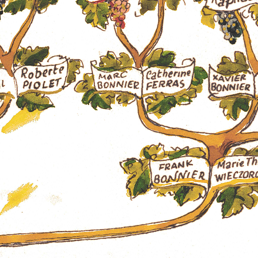 Roberte
PIOLET
MARC
BONNIER
Catherine
FERRAS
XAVIER
BONNIER
FRANK
BONNIER
Marie Th
WIECZOR